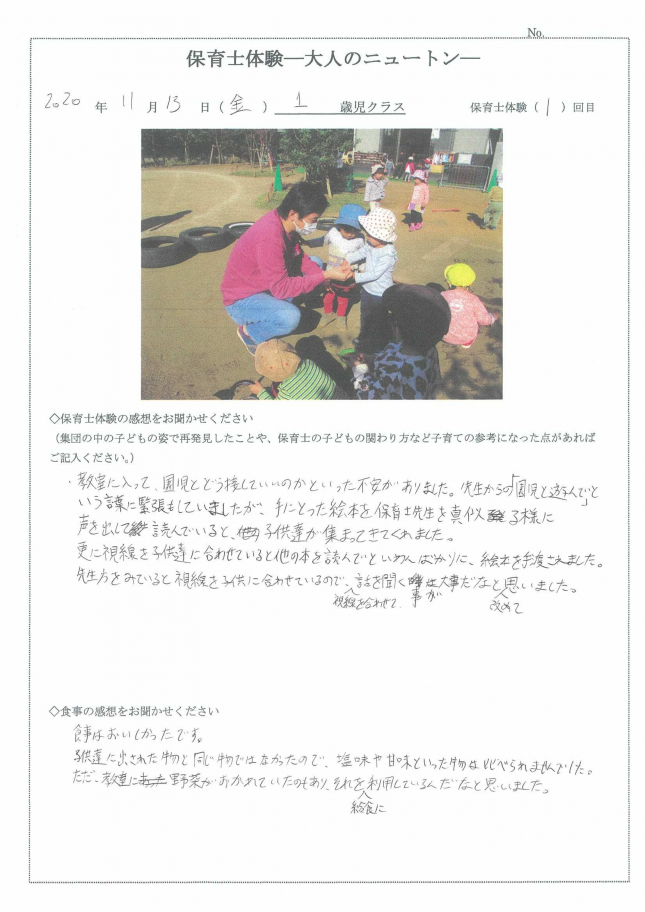 No.
保育士体験―大人のニュートン―
2020 年 11 月 13 日(金) 1 歳児クラス 保育士体験(1)回目
◇保育士体験の感想をお聞かせください
(集団の中の子どもの姿で再発見したことや、保育士の子どもの関わり方など子育ての参考になった点があれば
ご記入ください。)
・教室に入って、園児とどう接していいのかといった不安がありました。先生からの「園児と遊んで」と
いう言葉に緊張もしていましたが、手にとった絵本を保育士先生を真似る様に
声を出して読んでいると、子供達が集まってきてくれました。
更に視線を子供達に合わせていると他の本を読んでといわんばかりに、絵本を手渡されました。
先生方をみていると視線を子供に合わせているので、話を聞く 大事だなと思いました。
視線を合わせて、 事が 改めて
◇食事の感想をお聞かせください
食事はおいしかったです。
子供達に出された物と同じ物ではなかったので、塩味や甘味といった物は比べられませんでした。
ただ、教室に野菜がおかれていたのもあり、それを利用しているんだなと思いました。
給食に